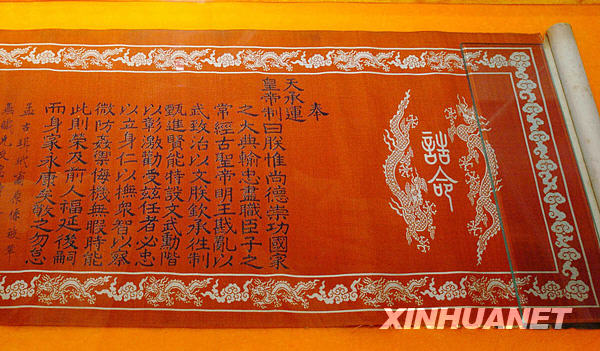 誥命
奉
天承運
皇帝制曰朕惟尚德崇功國家
之大典輸忠盡職臣子之
常經古聖帝明王戡亂以
武致治以文朕欽承往制
甄進賢能特設文武勳階
以彰激勸受茲任者必忠
以立身仁以撫眾智以察
微防姦禦侮機無暇時能
此則榮及前人福延後嗣
而身家永康矣敬之勿怠
孟古
XINHUANET